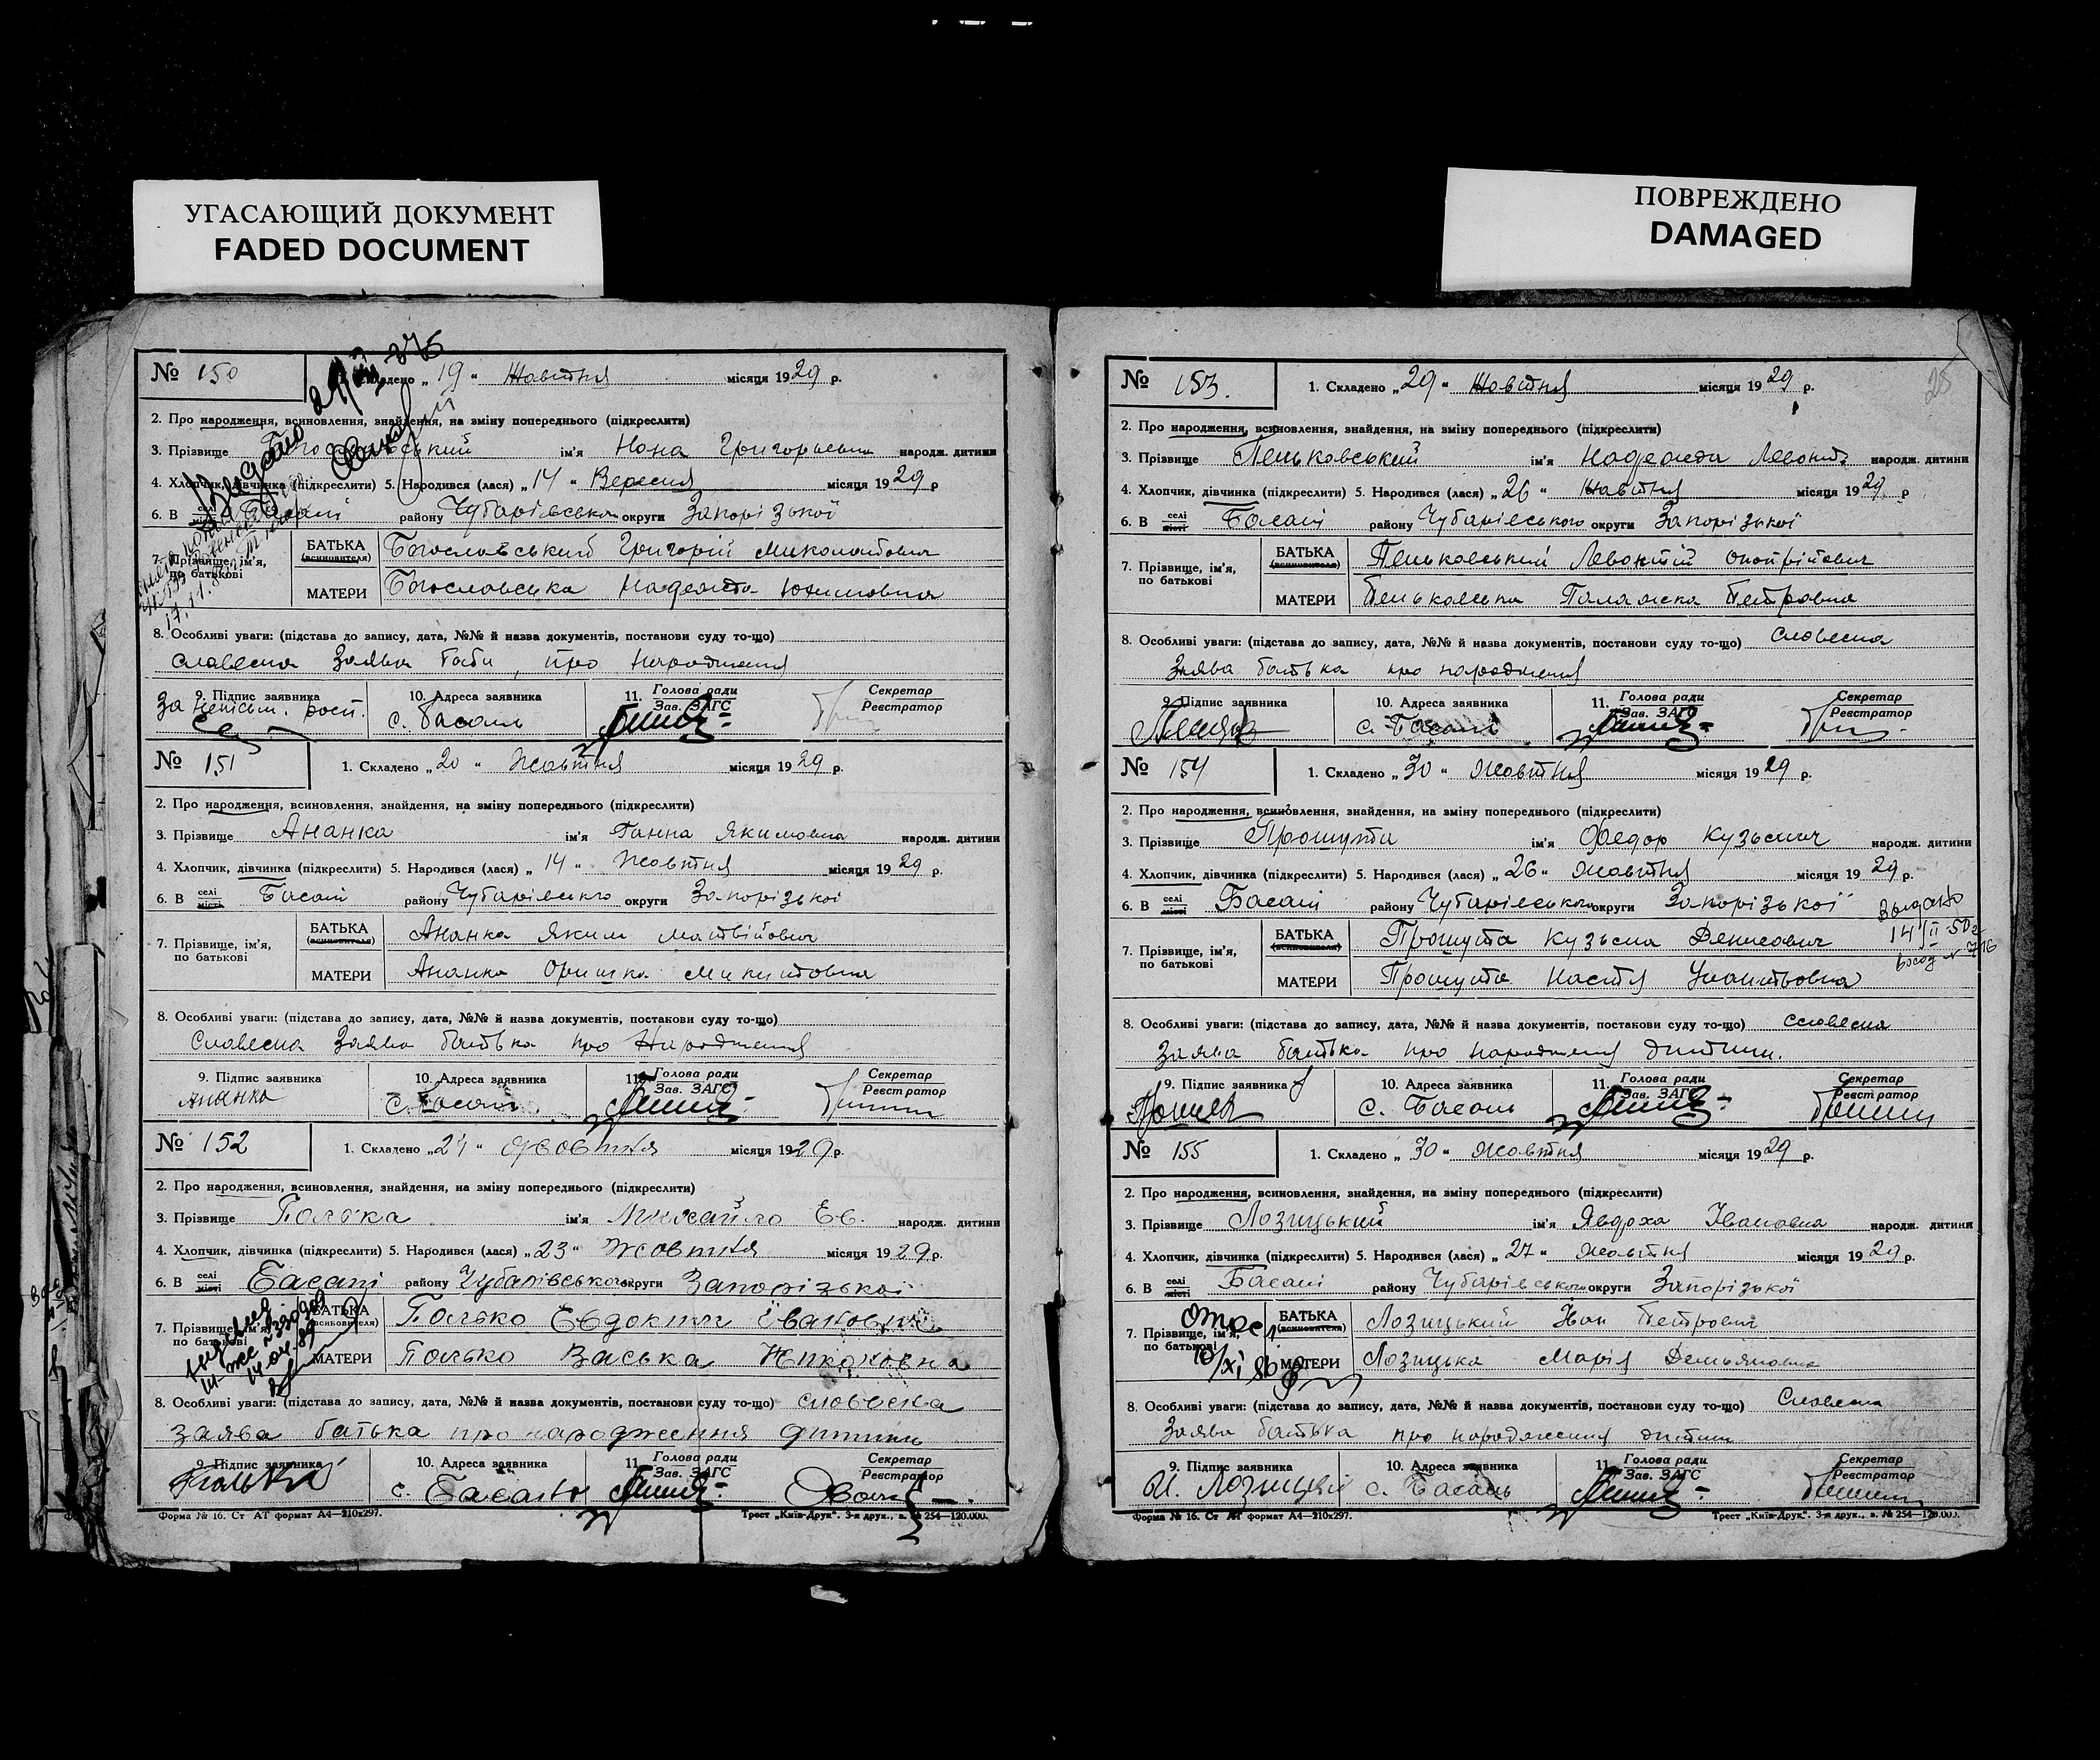 УГАСАЮЩИЙ ДОКУМЕНТ
FADED DOCUMENT
ПОВРЕЖДЕНО
DAMAGED
№ 150
Складено „19“ Жовтня місяця 1929 р.
2. Про народження, всиновлення, знайдення, на зміну попереднього (підкреслити)
3. Прізвище ім'я Нона Григорьевна народж. дитини
4. Хлопчик, дівчинка (підкреслити) 5. Народився (лася) „14“ Вересня місяця 1929 р
6. В селі місті Басані району Чубарівська округи Запорізької
7. Прізвище, ім'я, по батькові
БАТЬКА (всиновителя) Богословський Григорій Миколайович
МАТЕРИ Богословська Надежда Юхимовна
8. Особливі уваги: (підстава до запису, дата, №№ й назва документів, постанови суду то-що)
словесна Заява баби, про Народження
9. Підпис заявника
За неписьм. росп.
10. Адреса заявника
с. Басань
11. Голова ради
Зав. ЗАГС
Секретар
Реєстратор
№ 151
1. Складено „20“ Жовтня місяця 1929 р.
2. Про народження, всиновлення, знайдення, на зміну попереднього (підкреслити)
3. Прізвище Ананка ім'я Ганна Якимовна народж. дитини
4. Хлопчик, дівчинка (підкреслити) 5. Народився (лася) „14“ Жовтня місяця 1929 р.
6. В селі місті Басані району Чубарівського округи Запорізькоі
7. Прізвище, ім'я, по батькові
БАТЬКА (всиновителя) Ананка Яким Матвійович
МАТЕРИ Ананка Оришка Микитовна
8. Особливі уваги: (підстава до запису, дата, №№ й назва документів, постанови суду то-що)
Словесна Заява батька про Народження
9. Підпис заявника
Ананко
10. Адреса заявника
с. Басань
11. Голова ради
Зав. ЗАГС
Секретар
Реєстратор
№ 152
1. Складено „24“ Жовтня місяця 1929 р.
2. Про народження, всиновлення, знайдення, на зміну попереднього (підкреслити)
3. Прізвище Полька ім'я Михайло Ев. народж. дитини
4. Хлопчик, дівчинка (підкреслити) 5. Народився (лася) „23“ Жовтня місяця 1929 р.
6. В селі місті Басані району Чубарівського округи Запорізькоі
7. Прізвище, ім'я, по батькові
БАТЬКА (всиновителя) Полько Евдоким Іванович
МАТЕРИ Полько Васька
14.04.89
8. Особливі уваги: (підстава до запису, дата, №№ й назва документів, постанови суду то-що) словесна
заява батька про народження дитини
9. Підпис заявника
10. Адреса заявника
с. Басань
11. Голова ради
Зав. ЗАГС
Секретар
Реєстратор
Форма № 16. Ст АТ формат А4—210х297. Трест „Київ-Друк“. 3-я друк., з. № 254—120.000.
№ 153.
1. Складено „29“ Жовтня місяця 1929 р.
2. Про народження, всиновлення, знайдення, на зміну попереднього (підкреслити)
3. Прізвище Пеньковський ім'я Надежда Левонт. народж. дитини
4. Хлопчик, дівчинка (підкреслити) 5. Народився (лася) „26“ Жовтня місяця 1929 р
6. В селі місті Басані району Чубарівського округи Запорізької
7. Прізвище, ім'я, по батькові
БАТЬКА (всиновителя) Пеньковський Левонтій Онопрійович
МАТЕРИ Пеньковська Палажка Петровна
8. Особливі уваги: (підстава до запису, дата, №№ й назва документів, постанови суду то-що) словесна
Заява батька про народження
9. Підпис заявника
10. Адреса заявника
с. Басань
11. Голова ради
Зав. ЗАГС
Секретар
Реєстратор
№ 154
1. Складено „30“ Жовтня місяця 1929 р.
2. Про народження, всиновлення, знайдення, на зміну попереднього (підкреслити)
3. Прізвище Прошута ім'я Федор Кузьмич народж. дитини
4. Хлопчик, дівчинка (підкреслити) 5. Народився (лася) „26“ Жовтня місяця 1929 р.
6. В селі місті Басані району Чубарівського округи Запорізької
7. Прізвище, ім'я, по батькові
БАТЬКА (всиновителя) Прошута Кузьма Денисович
МАТЕРИ Прошута Настя
Выдано
14/II-50г
8. Особливі уваги: (підстава до запису, дата, №№ й назва документів, постанови суду то-що) словесна
Заява батька про народження дитини.
9. Підпис заявника
10. Адреса заявника
с. Басань
11. Голова ради
Зав. ЗАГС
Секретар
Реєстратор
№ 155
1. Складено „30“ Жовтня місяця 1929 р.
2. Про народження, всиновлення, знайдення, на зміну попереднього (підкреслити)
3. Прізвище Лозицький ім'я Явдоха Івановна народж. дитини
4. Хлопчик, дівчинка (підкреслити) 5. Народився (лася) „27“ Жовтня місяця 1929 р.
6. В селі місті Басані району Чубарівського округи Запорізької
7. Прізвище, ім'я, по батькові
БАТЬКА (всиновителя) Лозицький Іван Петрович
МАТЕРИ Лозицька Марія Демьяновна
8. Особливі уваги: (підстава до запису, дата, №№ й назва документів, постанови суду то-що) Словесна
Заява батька про народження дитини
9. Підпис заявника
И. Лозицкий
10. Адреса заявника
с. Басань
11. Голова ради
Зав. ЗАГС
Секретар
Реєстратор
Форма № 16. Ст АТ формат А4—210х297. Трест „Київ-Друк“. 3-я друк., з. № 254—120.000.